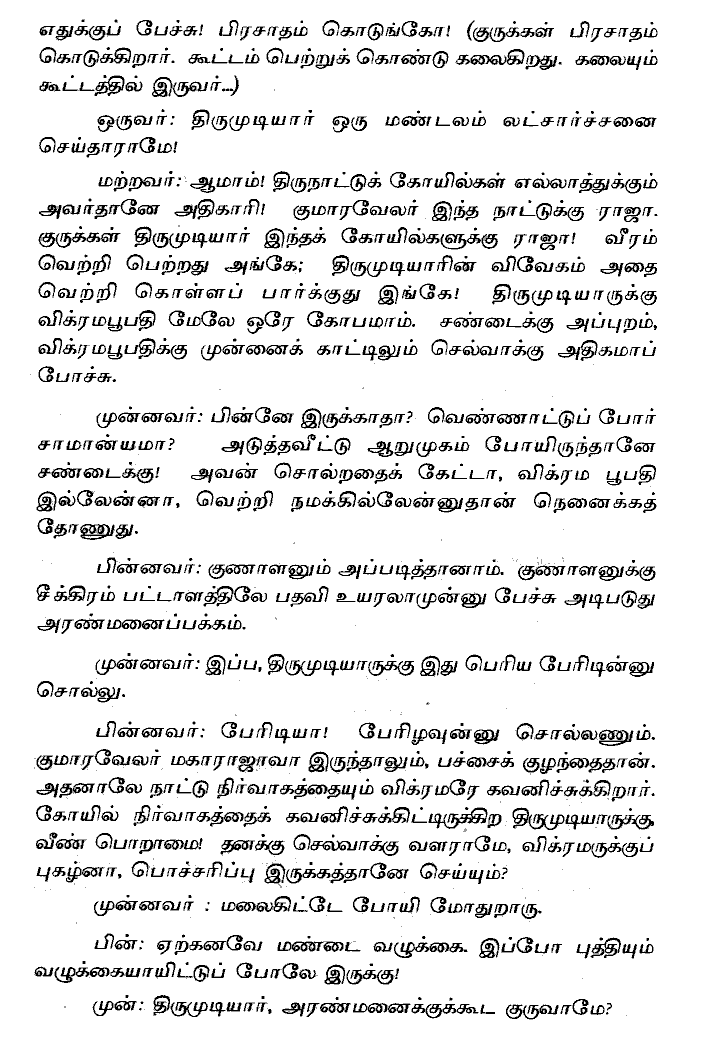 எதுக்குப் பேச்சு! பிரசாதம் கொடுங்கோ! (குருக்கள் பிரசாதம்
கொடுக்கிறார். கூட்டம் பெற்றுக் கொண்டு கலைகிறது. கலையும்
கூட்டத்தில் இருவர்...)
ஒருவர்: திருமுடியார் ஒரு மண்டலம் லட்சார்ச்சனை
செய்தாராமே!
மற்றவர்: ஆமாம்! திருநாட்டுக் கோயில்கள் எல்லாத்துக்கும்
அவர்தானே அதிகாரி! குமாரவேலர் இந்த நாட்டுக்கு ராஜா.
குருக்கள் திருமுடியார் இந்தக் கோயில்களுக்கு ராஜா! வீரம்
வெற்றி பெற்றது அங்கே; திருமுடியாரின் விவேகம் அதை
வெற்றி கொள்ளப் பார்க்குது இங்கே! திருமுடியாருக்கு
விக்ரமபூபதி மேலே ஒரே கோபமாம். சண்டைக்கு அப்புறம்,
விக்ரமபூபதிக்கு முன்னைக் காட்டிலும் செல்வாக்கு அதிகமாப்
போச்சு.
முன்னவர்: பின்னே இருக்காதா? வெண்ணாட்டுப் போர்
சாமான்யமா? அடுத்தவீட்டு ஆறுமுகம் போயிருந்தானே
சண்டைக்கு! அவன் சொல்றதைக் கேட்டா, விக்ரம பூபதி
இல்லேன்னா, வெற்றி நமக்கில்லேன்னுதான் நெனைக்கத்
தோணுது.
பின்னவர்: குணாளனும் அப்படித்தானாம். குணாளனுக்கு
சீக்கிரம் பட்டாளத்திலே பதவி உயரலாமுன்னு பேச்சு அடிபடுது
அரண்மனைப்பக்கம்.
முன்னவர்: இப்ப, திருமுடியாருக்கு இது பெரிய பேரிடின்னு
சொல்லு.
பின்னவர்: பேரிடியா! பேரிழவுன்னு சொல்லணும்.
குமாரவேலர் மகாராஜாவா இருந்தாலும், பச்சைக் குழந்தைதான்.
அதனாலே நாட்டு நிர்வாகத்தையும் விக்ரமரே கவனிச்சுக்கிறார்.
கோயில் நிர்வாகத்தைக் கவனிச்சுக்கிட்டிருக்கிற திருமுடியாருக்கு,
வீண் பொறாமை! தனக்கு செல்வாக்கு வளராமே, விக்ரமருக்குப்
புகழ்னா, பொச்சரிப்பு இருக்கத்தானே செய்யும்?
முன்னவர் : மலைகிட்டே போயி மோதுறாரு.
பின்: ஏற்கனவே மண்டை வழுக்கை. இப்போ புத்தியும்
வழுக்கையாயிட்டுப் போலே இருக்கு!
முன்: திருமுடியார், அரண்மனைக்குக்கூட குருவாமே?